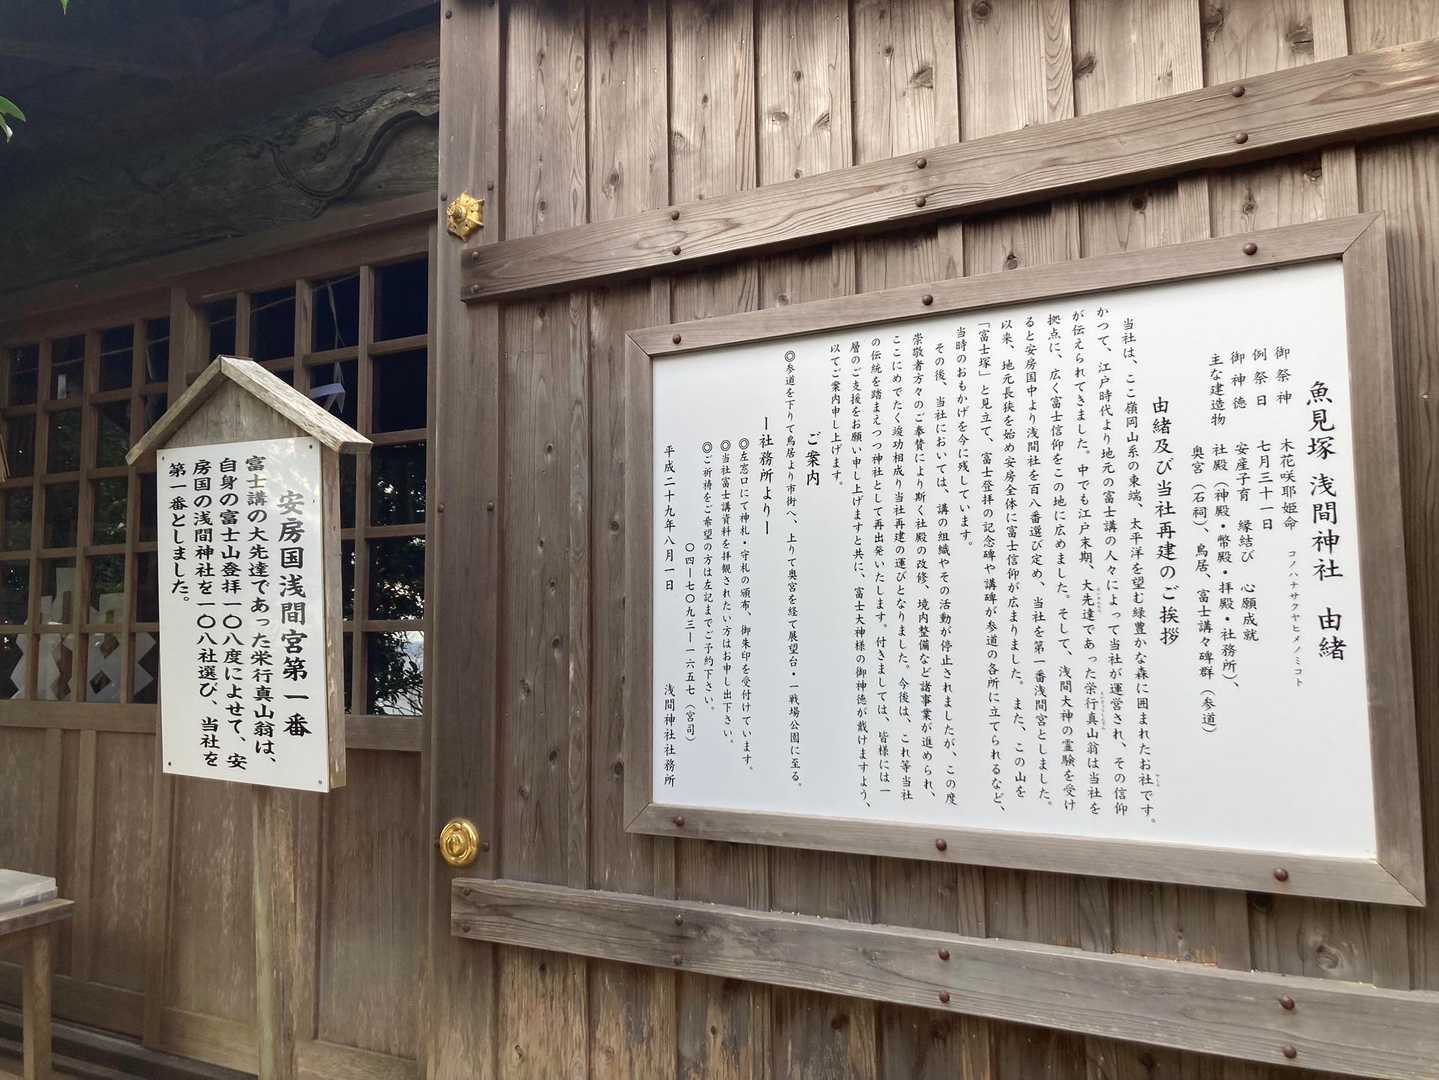 魚見塚 浅間神社 由緒
御祭神 木花咲耶姫命 コノハナサクヤヒメノミコト
例祭日 七月三十一日
御神徳 安産子育 縁結び 心願成就
主な建造物 社殿(神殿・幣殿・拝殿・社務所)、
奥宮(石祠)、鳥居、富士講々碑群(参道)
由緒及び当社再建のご挨拶
当社は、ここ嶺岡山系の東端、太平洋を望む緑豊かな森に囲まれたお社です。
かつて、江戸時代より地元の富士講の人々によって当社が運営され、その信仰
が伝えられてきました。中でも江戸末期、大先達であった栄行真山翁は当社を
拠点に、広く富士信仰をこの地に広めました。そして、浅間大神の霊験を受け
ると安房国中より浅間社を百八番選び定め、当社を第一番浅間宮としました。
以来、地元長狭を始め安房全体に富士信仰が広まりました。また、この山を
「富士塚」と見立て、富士登拝の記念碑や講碑が参道の各所に立てられるなど、
当時のおもかげを今に残しています。
その後、当社においては、講の組織やその活動が停止されましたが、この度
崇敬者方々のご奉賛により斯く社殿の改修、境内整備など諸事業が進められ、
ここにめでたく竣功相成り当社再建の運びとなりました。今後は、これ等当社
の伝統を踏まえつつ神社として再出発いたします。付きましては、皆様には一
層のご支援をお願い申し上げますと共に、富士大神様の御神徳が戴けますよう、
以てご案内申し上げます。
ご案内
◎参道を下りて鳥居より市街へ、上りて奥宮を経て展望台・一戦場公園に至る。
ー社務所よりー
◎左窓口にて神札・守札の頒布、御朱印を受付けています。
◎当社富士講資料を拝観されたい方はお申し出下さい。
◎ご祈祷をご希望の方は左記までご予約下さい。
〇四ー七〇九三ー一六五七(宮司)
平成二十九年八月一日 浅間神社社務所
安房国浅間宮第一番
富士講の大先達であった栄行真山翁は、
自身の富士山登拝一〇八度によせて、安
房国の浅間神社を一〇八社選び、当社を
第一番としました。